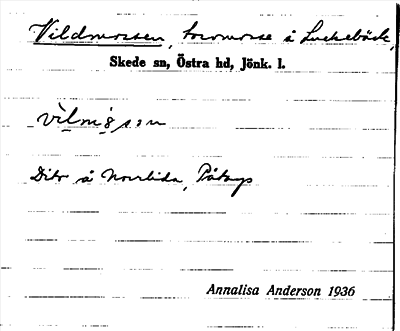 Vildmossen, torvmosse å Luckebäck,
Skede sn, Östra hd, Jönk. l.
Dito å Norrlida,
Annalisa Anderson 1936